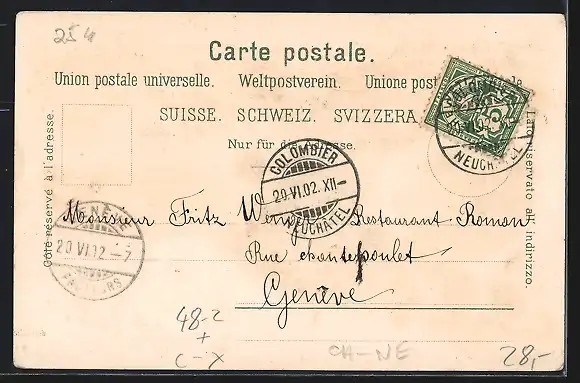 25 4
Carte postale.
Union postale universelle. Weltpostverein. Unione post
SUISSE. SCHWEIZ. SVIZZERA.
Nur für die Adresse.
Côté réservé à l'adresse.
Lato riservato all' indirizzo.
NEUCHÂTEL
COLOMBIER
20.VI.02.XII-
NEUCHÂTEL
20 VI.02 -7
Monsieur Fritz Restaurant Roman
Rue chantepoulet
Genève
48-2
+
C-X
CH-NE
28,-